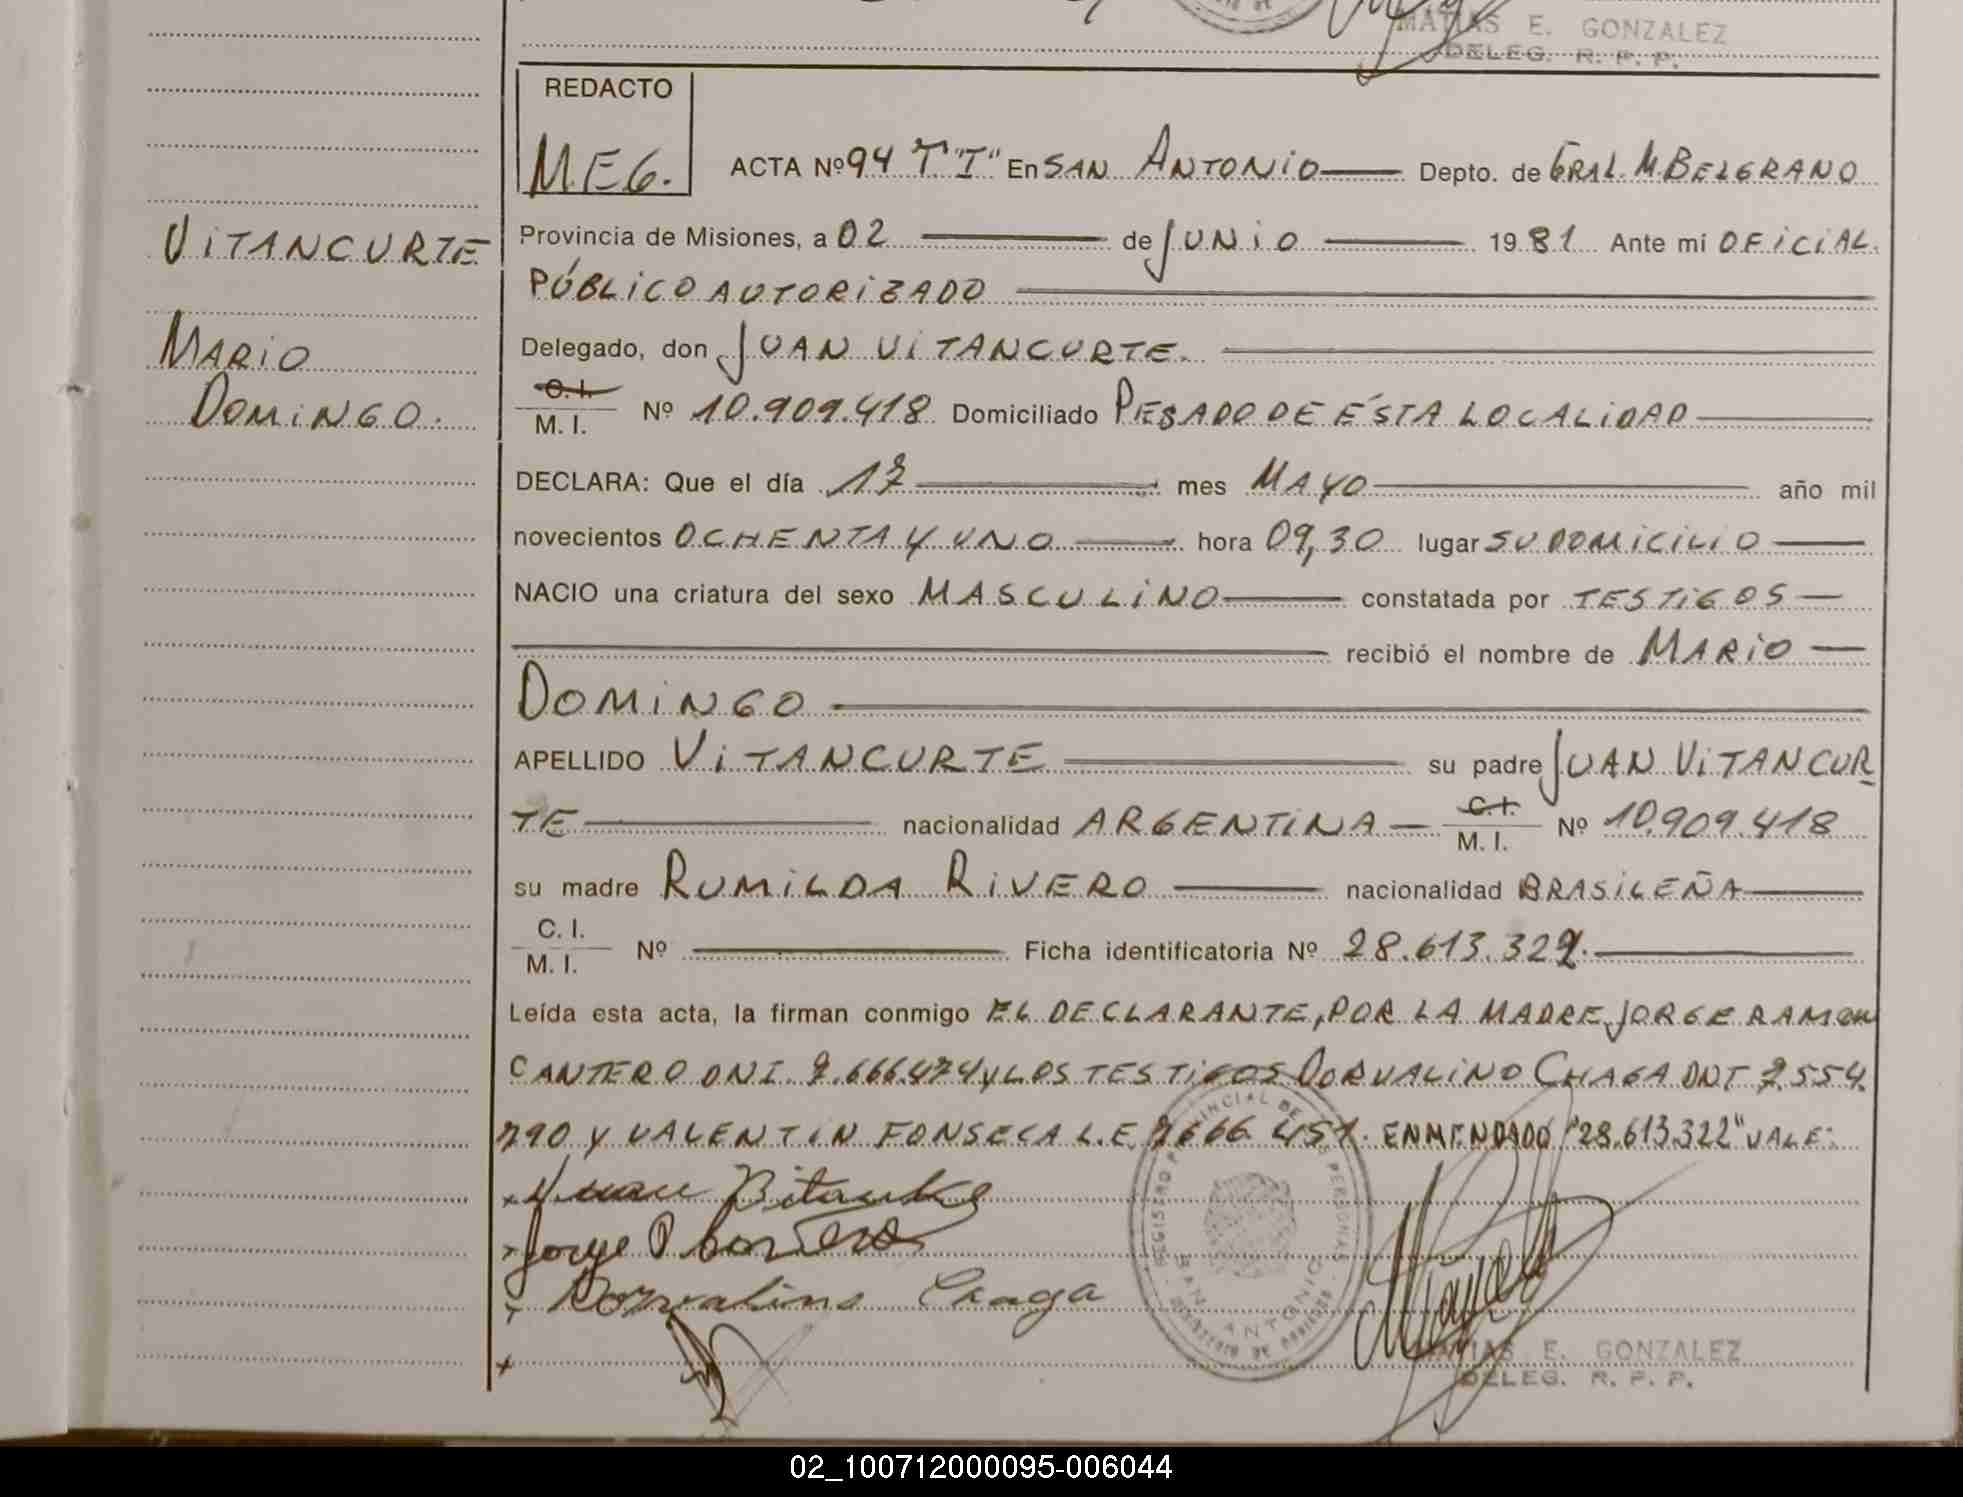 MATIAS E. GONZALEZ
DELEG. R. P. P.
REDACTO
M.E.G.
ACTA Nº 94 T "I" En SAN ANTONIO Depto. de GRAL. M. BELGRANO
VITANCURTE
MARIO
DOMINGO.
Provincia de Misiones, a 02 de JUNIO 1981 Ante mí OFICIAL
PÚBLICO AUTORIZADO
Delegado, don JUAN VITANCURTE.
C. I.
M. I. Nº 10.909.418 Domiciliado PESADO DE ÉSTA LOCALIDAD
DECLARA: Que el día 17 mes MAYO año mil
novecientos OCHENTA Y UNO hora 09,30 lugar SU DOMICILIO
NACIO una criatura del sexo MASCULINO constatada por TESTIGOS
recibió el nombre de MARIO
DOMINGO
APELLIDO VITANCURTE su padre JUAN VITANCUR
TE nacionalidad ARGENTINA C. I. M. I. Nº 10.909.418
su madre RUMILDA RIVERO nacionalidad BRASILEÑA
C. I.
M. I. Nº Ficha identificatoria Nº 28.613.322.
Leída esta acta, la firman conmigo EL DECLARANTE, POR LA MADRE JORGE RAMON
CANTERO DNI 7.666.474 y LOS TESTIGOS DORVALINO CHAGA DNI 7.554.
790 Y VALENTIN FONSECA L.E. 7666 451. ENMENDADO "28.613.322" VALE:
Juan Bitancurte
Jorge R Cantero
Dorvalino Chaga
REGISTRO PROVINCIAL DE LAS PERSONAS
SAN ANTONIO
MATIAS E. GONZALEZ
DELEG. R. P. P.
02_100712000095-006044